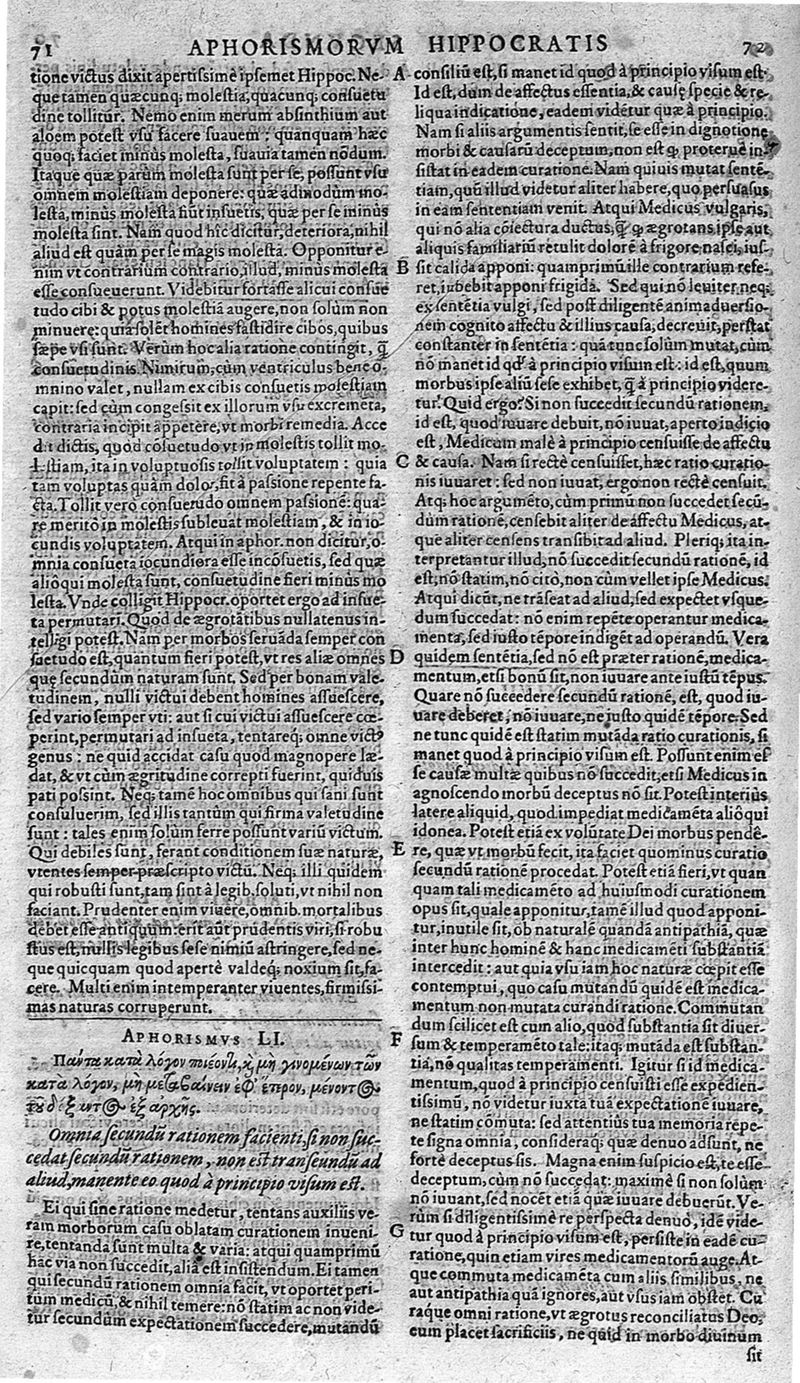 71 APHORISMORVM HIPPOCRATIS 72
tione victus dixit apertissimè ipsemet Hippoc. Ne-
que tamen quæcunq; molestia, quacunq; consuetu
dine tollitur. Nemo enim merum absinthium aut
aloem potest vsu facere suauem: quanquam hæc
quoq; faciet minùs molesta, suauia tamen nõdum.
Itaque quæ parùm molesta sunt per se, possunt vsu
omnem molestiam deponere: quæ admodùm mo-
lesta, minùs molesta fiũt insuetis, quæ per se minùs
molesta sint. Nam quod hîc dicitur, deteriora, nihil
aliud est quàm per se magis molesta. Opponitur e-
nim vt contrarium contrario, illud, minùs molesta
esse consueuerunt. Videbitur fortasse alicui consue
tudo cibi & potus molestiã augere, non solùm non
minuere: quia solẽt homines fastidire cibos, quibus
sæpe vsi sunt. Verùm hoc alia ratione contingit, ꝗ̃
consuetudinis. Nimirum, cùm ventriculus bene o-
mnino valet, nullam ex cibis consuetis molestiam
capit: sed cùm congessit ex illorum vsu excremẽta,
contraria incipit appetere, vt morbi remedia. Acce
dit dictis, quòd cõsuetudo vt in molestis tollit mo-
lestiam, ita in voluptuosis tollit voluptatem: quia
tam voluptas quàm dolor, fit à passione repente fa-
cta. Tollit verò consuetudo omnem passionẽ: qua-
re meritò in molestis subleuat molestiam, & in io-
cundis voluptatem. Atqui in aphor. non dicitur, o-
mnia consueta iocundiora esse incõsuetis, sed quæ
alioqui molesta sunt, consuetudine fieri minùs mo
lesta. Vnde colligit Hippocr. oportet ergo ad insue-
ta permutari. Quod de ægrotãtibus nullatenus in-
telligi potest. Nam per morbos seruãda semper con
suetudo est, quantum fieri potest, vt res aliæ omnes
quę secundùm naturam sunt. Sed per bonam vale-
tudinem, nulli victui debent homines assuescere,
sed vario semper vti: aut si cui victui assuescere cœ-
perint, permutari ad insueta, tentareq; omne victꝰ
genus: ne quid accidat casu quod magnopere læ-
dat, & vt cùm ægritudine correpti fuerint, quiduis
pati possint. Neq; tamẽ hoc omnibus qui sani sunt
consuluerim, sed illis tantùm qui firma valetudine
sunt: tales enim solùm ferre possunt variũ victum.
Qui debiles sunt, ferant conditionem suæ naturæ,
vtentes semper præscripto victu. Neq. illi quidem
qui robusti sunt, tam sint à legib. soluti, vt nihil non
faciant. Prudenter enim viuere, omnib. mortalibus
debet esse antiquum: erit aũt prudentis viri, si robu
stus est, nullis legibus sese nimiũ astringere, sed ne-
que quicquam quod apertè valdeq; noxium sit, fa-
cere. Multi enim intemperanter viuentes, firmissi-
mas naturas corruperunt.
APHORISMVS LI.
Πάντα κατὰ λόγον ποιέοντι, κ̀ μὴ γινομένων τῶν
κατὰ λόγον, μὴ μεταβαίνειν ἐφ' ἕτερον, μένοντος
τοῦ δόξαντος ἐξ ἀρχῆς.
Omnia secundũ rationem facienti, si non suc-
cedat secundùm rationem, non est transeundũ ad
aliud, manente eo quod à principio visum est.
Ei qui sine ratione medetur, tentans auxiliis ve-
ram morborum casu oblatam curationem inueni-
re, tentanda sunt multa & varia: atqui quamprimũ
hac via non succedit, alia est insistendum. Ei tamen
qui secundùm rationem omnia facit, vt oportet peri-
tum medicũ, & nihil temere: nõ statim ac non vide-
tur secundùm expectationem succedere, mutandũ
A consiliũ est, si manet id quod à principio visum est.
Id est, dum de affectus essentia, & causę specie & re-
liqua indicatione, eadem vidẽtur quæ à principio.
Nam si aliis argumentis sentit, se esse in dignotione
morbi & causarũ deceptum, non est ꝙ proteruè in-
sistat in eadem curatione. Nam quiuis mutat sentẽ-
tiam, quũ illud videtur aliter habere, quo persuasus
in eam sententiam venit. Atqui Medicus vulgaris,
qui nõ alia cõiectura ductus, ꝗ̃ ꝙ ægrotans ipse aut
aliquis familiariũ retulit dolorẽ à frigore nasci, ius-
B sit calida apponi: quamprimũ ille contrarium refe-
ret, iubebit apponi frigida. Sed qui nõ leuiter, neq;
ex sentẽtia vulgi, sed post diligentẽ animaduersio-
nem cognito affectu & illius causa, decreuit, perstat
constanter in sentẽtia: quã tunc solùm mutat, cùm
nõ manet id qđ à principio visum est: id est, quum
morbus ipse aliũ sese exhibet, ꝗ̃ à principio videre-
tur. Quid ergo? Si non succedit secundũ rationem,
id est, quod iuuare debuit, nõ iuuat, aperto indicio
est, Medicum malè à principio censuisse de affectu
C & causa. Nam si rectè censuisset, hæc ratio curatio-
nis iuuaret: sed non iuuat, ergo non rectè censuit.
Atq; hoc argumẽto, cùm primũ non succedet secũ-
dùm rationẽ, censebit aliter de affectu Medicus, at-
que aliter censens transibit ad aliud. Pleriq; ita in-
terpretantur illud, nõ succedit secundũ rationẽ, id
est, nõ statim, nõ citò, non cùm vellet ipse Medicus.
Atqui dicũt, ne trãseat ad aliud, sed expectet vsque-
dum succedat: nõ enim repẽte operantur medica-
menta, sed iusto tẽpore indigẽt ad operandũ. Vera
D quidem sentẽtia, sed nõ est præter rationẽ, medica-
mentum, etsi bonũ sit, non iuuare ante iustũ tẽpus.
Quare nõ succedere secundùm rationẽ, est, quod iu-
uare deberet, nõ iuuare, ne iusto quidẽ tẽpore. Sed
ne tunc quidẽ est statim mutãda ratio curationis, si
manet quod à principio visum est. Possunt enim es
se causæ multæ quibus nõ succedit, etsi Medicus in
agnoscendo morbũ deceptus nõ sit. Potest interiùs
latere aliquid, quod impediat medicamẽta alioqui
idonea. Potest etiã ex volũtate Dei morbus pendẽ-
E re, quæ vt morbũ fecit, ita faciet quominus curatio
secundũ rationẽ procedat. Potest etiã fieri, vt quan
quam tali medicamẽto ad huiusmodi curationem
opus sit, quale apponitur, tamẽ illud quod apponi-
tur, inutile sit, ob naturalẽ quandã antipathiã, quæ
inter hunc hominẽ & hanc medicamẽti substantiã
intercedit: aut quia vsu iam hoc naturæ cœpit esse
contemptui, quo casu mutandũ quidẽ est medica-
mentum non mutata curãdi ratione. Commutan
dum scilicet est cum alio, quod substantia sit diuer-
F sum & temperamẽto tale: itaq; mutãda est substan-
tia, nõ qualitas temperamenti. Igitur si id medica-
mentum, quod à principio censuisti esse expedien-
tissimũ, nõ videtur iuxta tuã expectationẽ iuuare,
ne statim cõmuta: sed attentiùs tua memoria repe-
te signa omnia, consideraq; quæ denuo adsunt, ne
fortè deceptus sis. Magna enim suspicio est, te esse
deceptum, cùm nõ succedat: maximè si non solùm
nõ iuuant, sed nocẽt etiã quæ iuuare debuerũt. Ve-
rùm si diligentissimè re perspecta denuò, idẽ vide-
G tur quod à principio visum est, persiste in eadẽ cu-
ratione, quin etiam vires medicamentorũ auge. At-
que commuta medicamẽta cum aliis similibus, ne
aut antipathia quã ignores, aut vsus iam obstet. Cu
raque omni ratione, vt ægrotus reconciliatus Deo,
eum placet sacrificiis, ne quid in morbo diuinum
sit